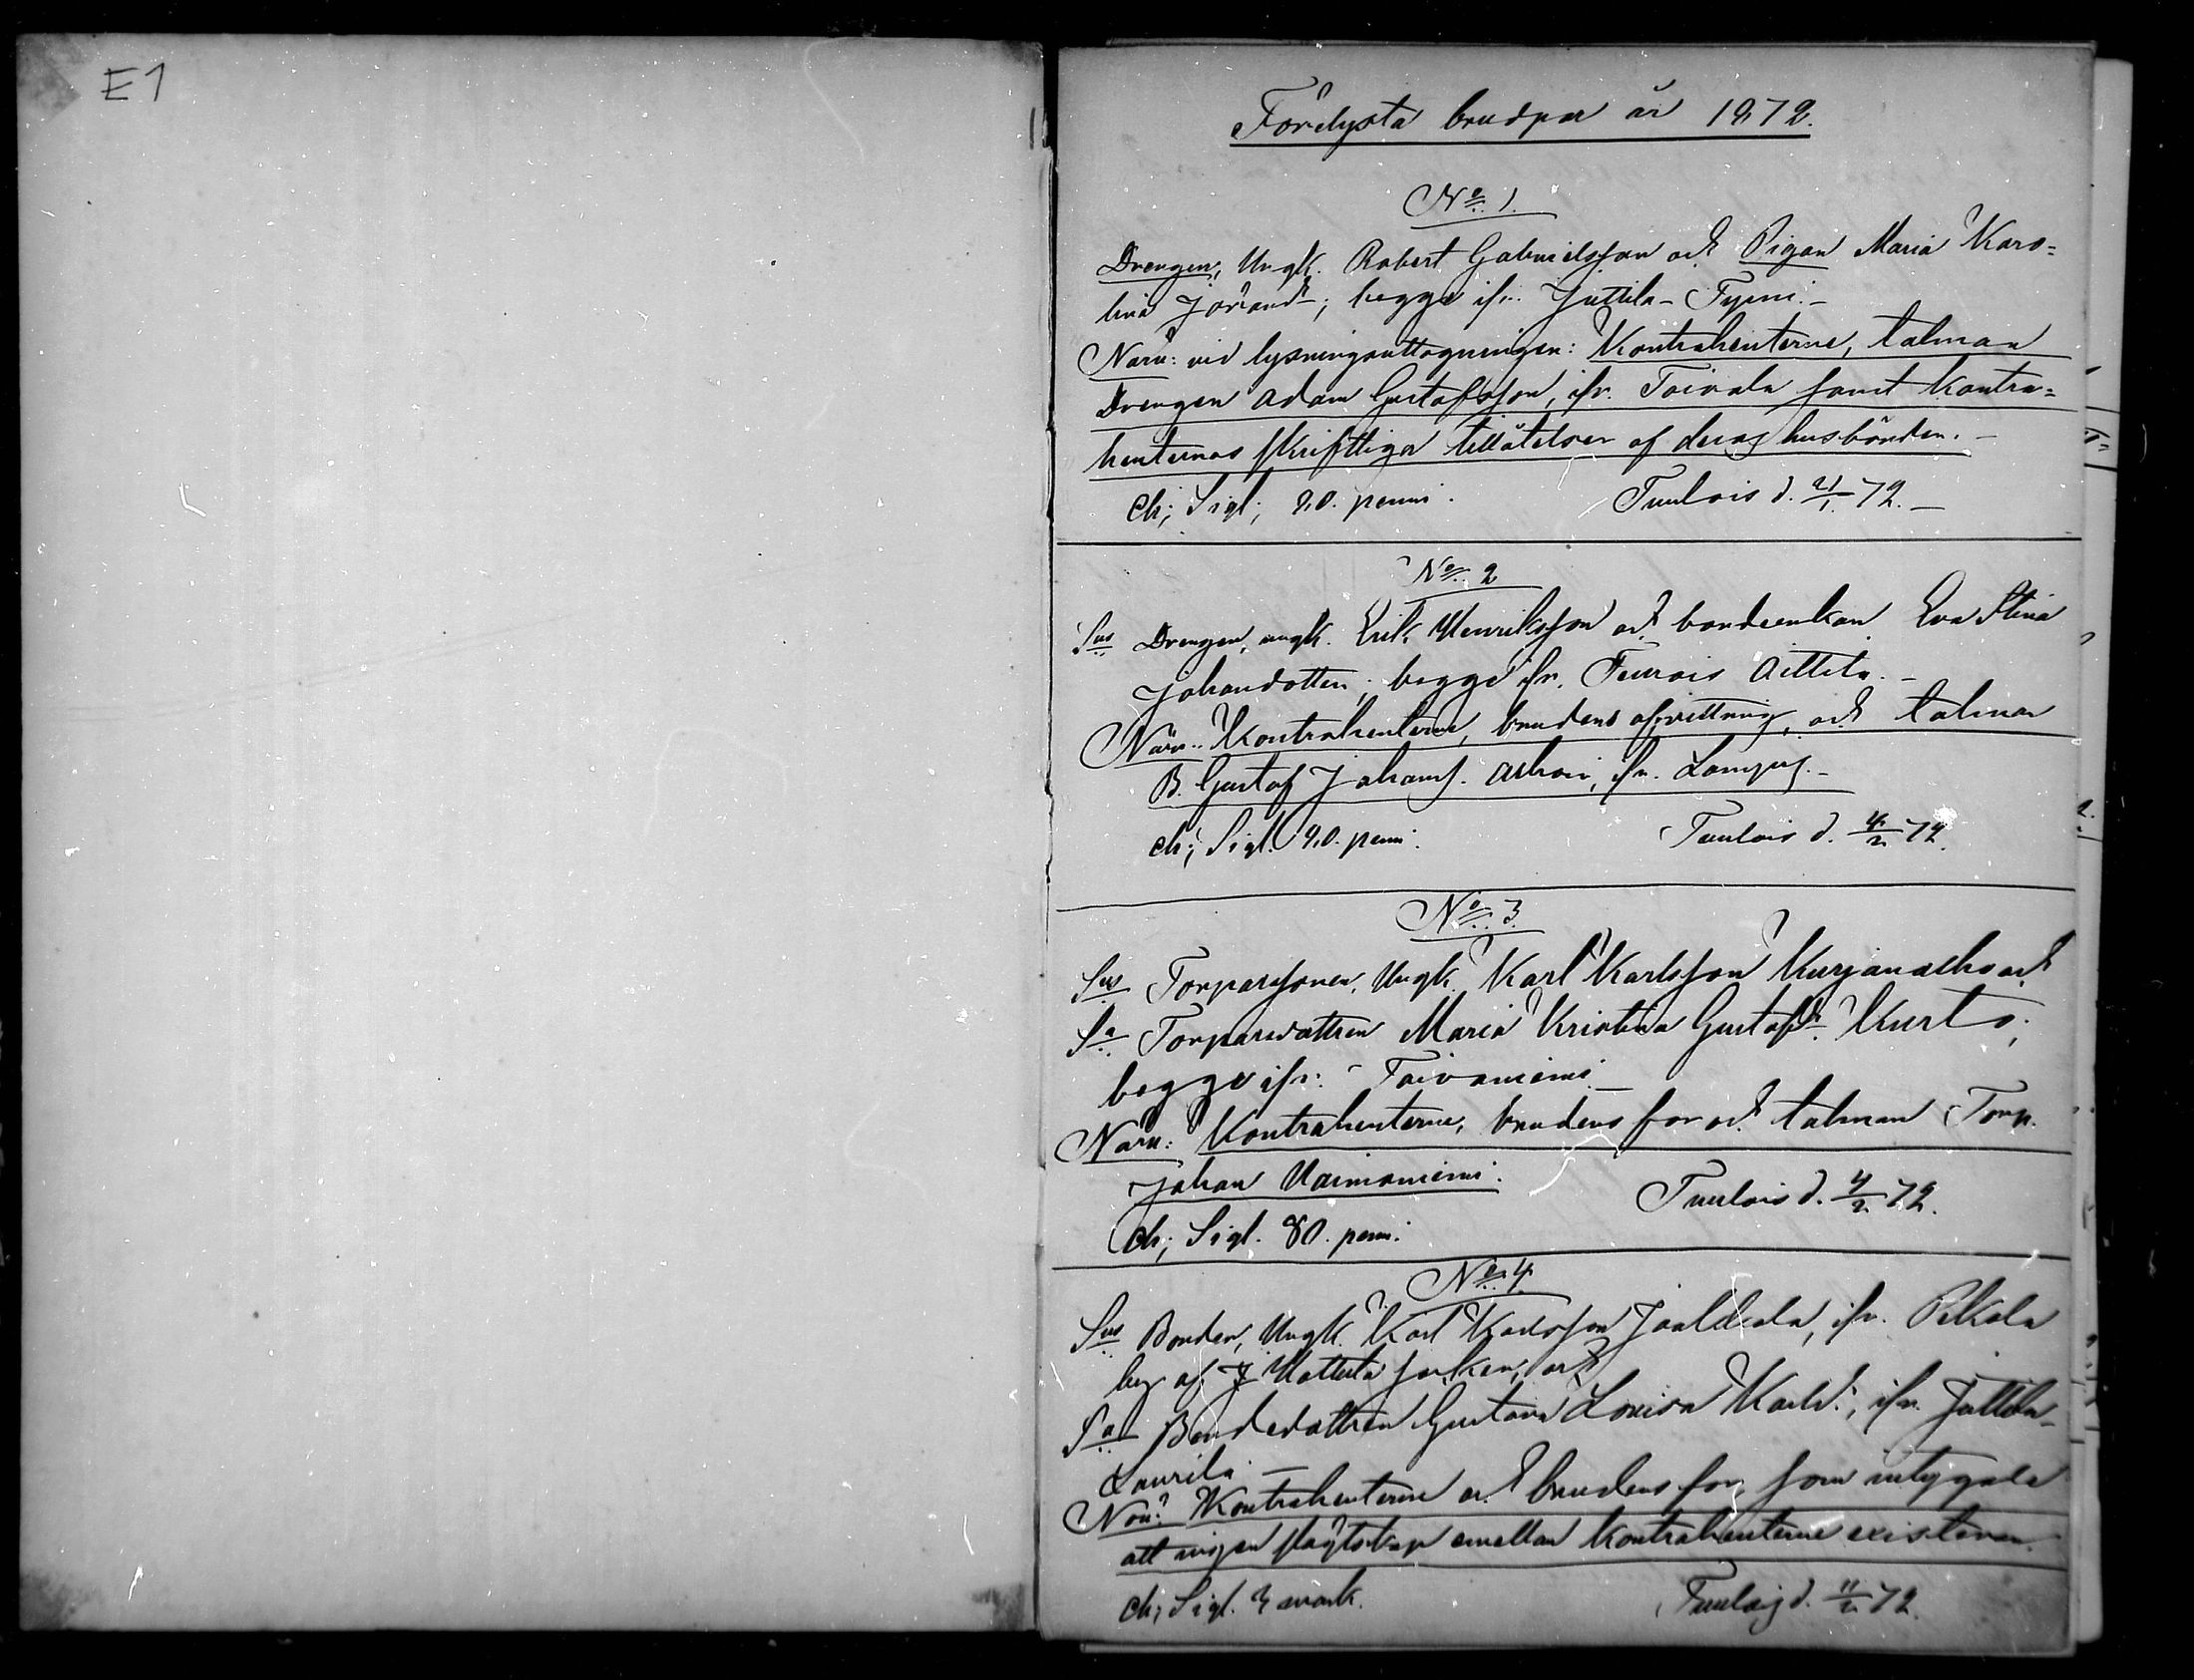 E1
Förelysta brudpar år 1872.
No 1.
Drengen, Ungk. Robert Gabrielsson och Pigan Maria Karo=
lina Jöransdr; begge ifr. Juttila-Tyrni.-
Närv: vid lysningsuttagningen: Kontrahenterne, talman
Drengen Adam Gustafsson, ifr. Toivala samt Kontra=
henternas skriftliga tillåtelser af deras husbönder.-
Ch; Sigl; 80. penni.
Tuulois d. 21/1 72.-
No 2
Sus Drengen, ungk. Erik Henriksson och bondeenkan Eva Stina
Johansdotter; begge ifr. Tuurois Aittila.-
Närv: Kontrahenterne, brudens afvittring, och talman
B. Gustaf Johanss. Alhoi, ifr. Lampis.-
Ch; Sigl. 80. penni.
Tuulois d. 4/2 72.
No 3.
Sus Torparesonen, Ungk. Karl Karlsson Kurjanaho och
Sa Torparedottren Maria Kristina Gustafsdr Kurto;
begge ifr. Toivaniemi.-
Närv: Kontrahenterne, brudens far och talman Torp.
Johan Vainioniemi.
Ch; Sigl. 80. penni.
Tuulois d. 4/2 72.
No 4.
Sus Bonden, Ungk. Karl Karlsson Jaakkola, ifr. Pekola
by af Hattula socken; och
Sa Bondedottren Gustava Lovisa Karlsdr, ifr. Juttila-
Laurila.-
Närv: Kontrahenterne och brudens far, som intygade
att ingen slägtskap emellan Kontrahenterne existerar.
Ch; Sigl. mark.
Tuulois d. 11/2 72.